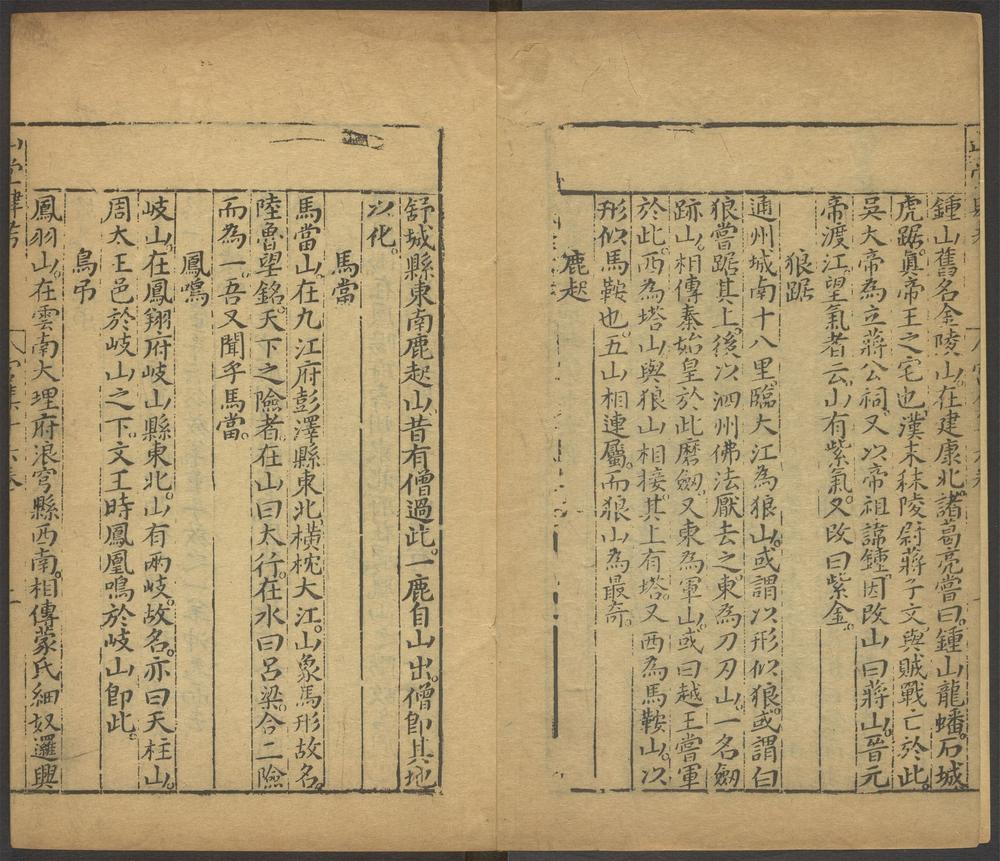 鍾山舊名金陵山。在建康北。諸葛亮嘗曰。鍾山龍蟠。石城
虎踞。眞帝王之宅也。漢末秣陵尉蔣子文與賊戰亡於此。
吳大帝為立蔣公祠。又以帝祖諱鍾。因改山曰蔣山。晉元
帝渡江。望氣者云。山有紫氣。又改曰紫金。
狼踞
通州城南十八里。臨大江為狼山。或謂以形似狼。或謂白
狼嘗踞其上。後以泗州佛法厭去之。東為刀刃山。一名劒
跡山。相傳秦始皇於此磨劒。又東為軍山。或曰越王嘗軍
於此。西為塔山與狼山相接。其上有塔。又西為馬鞍山。以
形似馬鞍也。五山相連屬。而狼山為最奇。
鹿起
舒城縣東南鹿起山。昔有僧過此。一鹿自山出。僧卽其地
以化。
馬當
馬當山。在九江府彭澤縣東北。橫枕大江。山象馬形故名。
陸魯望銘。天下之險者。在山曰太行。在水曰呂梁。合二險
而為一。吾又聞乎馬當。
鳳鳴
岐山。在鳳翔府岐山縣東北。山有兩岐。故名。亦曰天柱山。
周太王邑於岐山之下。文王時鳳凰鳴於岐山卽此。
鳥弔
鳳羽山。在雲南大理府浪穹縣西南。相傳蒙氏細奴邏興